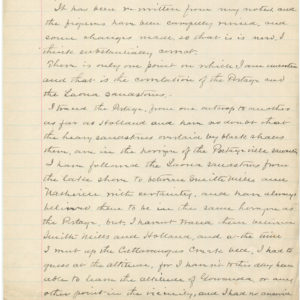 It has been re-written from my notes and
the properties have been completely revised, and
some changes made so that is is now, I
think substantially correct.
There is only one point on which I am uncertain
and that is the correlation of the Portage and
the Laona sandstones.
I traced the Portage, from one outcrop to another
as far as Holland and have no doubt that
the heavy sandstones overlaid by black shales
there, are in the horizon of the Portageville sandstone
I have followed the Laona sandstone from
the lake shore to between Smith's Mills and
Nashville with certainty, and have always
believed them to be in the same horizon as
the Portage, but I cannot trace them between
Smith's Mills and Holland, and at the time
I went up the Cattaraugus Creek bed, I had to
guess at the altitude, for I have not to this day been
able to learn the altitude of Gowanda, or any
other point in the vicinity, and I had no